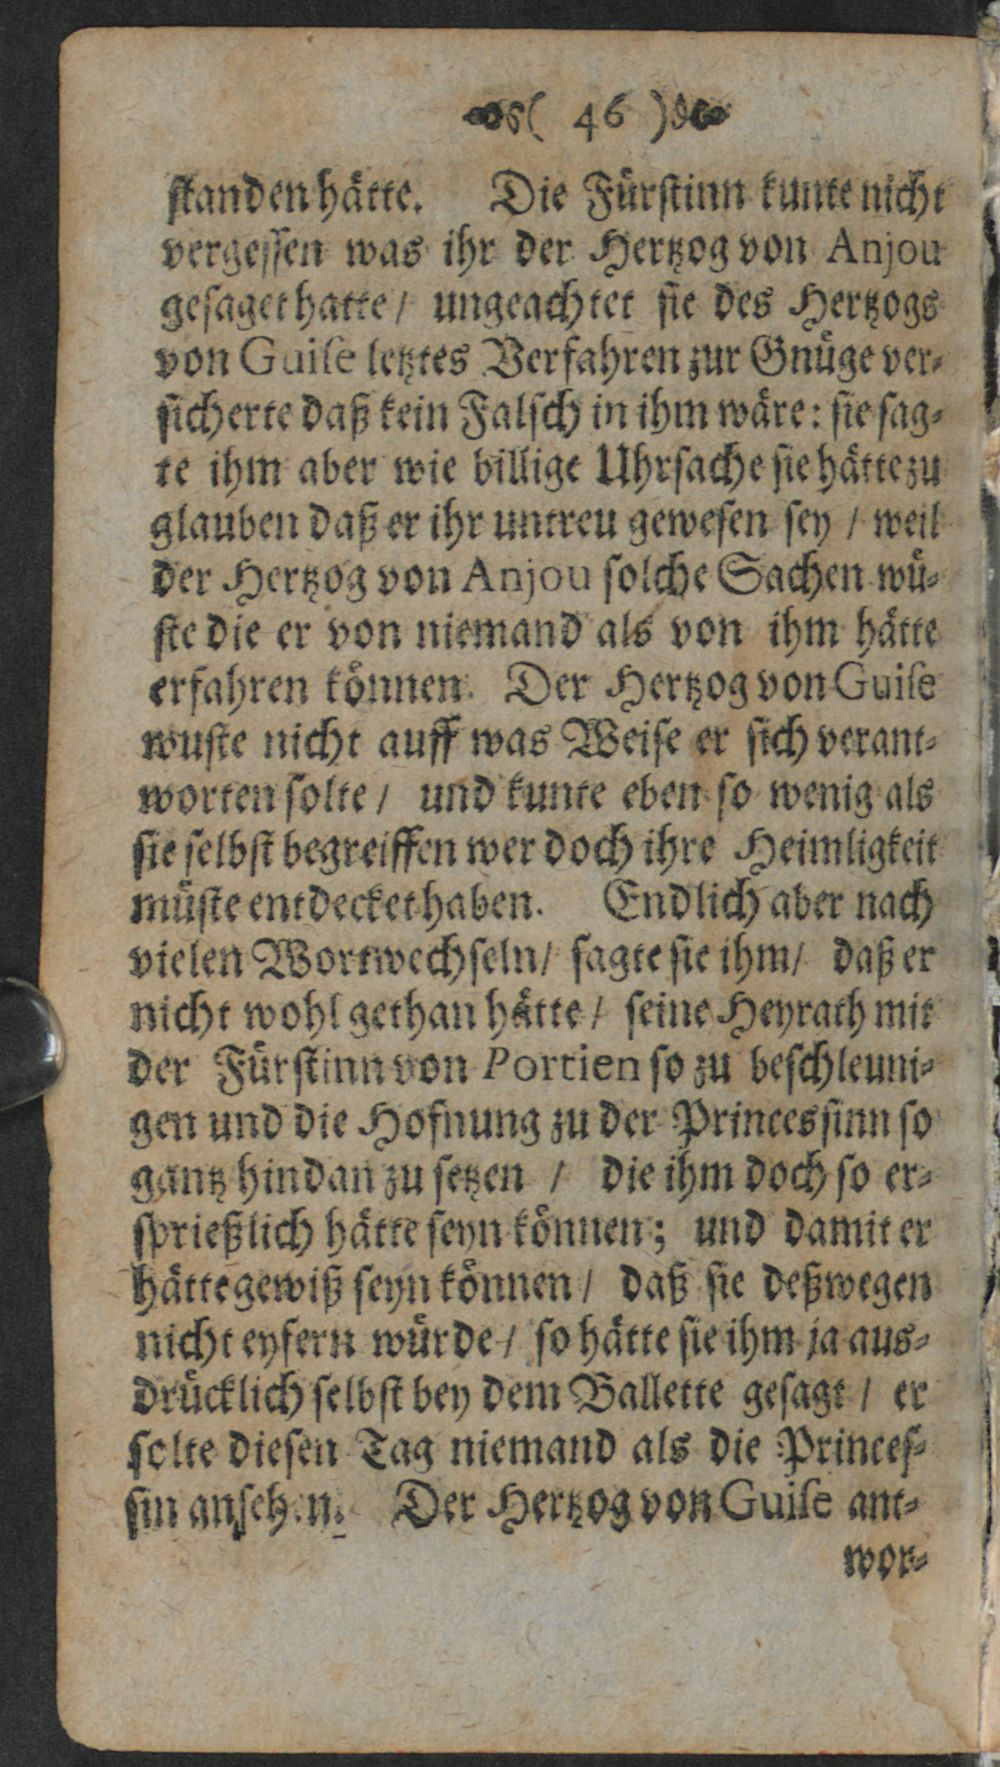 ( 46 )
ſtanden hätte. Die Fürſtinn kunte nicht
vergeſſen was ihr der Hertzog von Anjou
geſaget hatte / ungeachtet ſie des Hertzogs
von Guiſe letztes Verfahren zur Gnüge ver⸗
ſicherte daß kein Falſch in ihm wäre: ſie ſag⸗
te ihm aber wie billige Uhrſache ſie hätte zu
glauben daß er ihr untreu geweſen ſey / weil
der Hertzog von Anjou ſolche Sachen wü⸗
ſte die er von niemand als von ihm hätte
erfahren können. Der Hertzog von Guiſe
wuſte nicht auff was Weiſe er ſich verant⸗
worten ſolte / und kunte eben ſo wenig als
ſie ſelbſt begreiffen wer doch ihre Heimligkeit
müſte entdecket haben. Endlich aber nach
vielen Wortwechſeln / ſagte ſie ihm / daß er
nicht wohl gethan hätte / ſeine Heyrath mit
der Fürſtinn von Portien ſo zu beſchleuni⸗
gen und die Hofnung zu der Princesſinn ſo
gäntz hindan zu ſetzen / die ihm doch ſo er⸗
ſprießlich hätte ſeyn können; und damit er
hätte gewiß ſeyn können / daß ſie deßwegen
nicht eyfern würde / ſo hätte ſie ihm ja aus⸗
drücklich ſelbſt bey dem Ballette geſagt / er
ſolte dieſen Tag niemand als die Princeſ⸗
ſin anſehen. Der Hertzog von Guiſe ant⸗
wor⸗